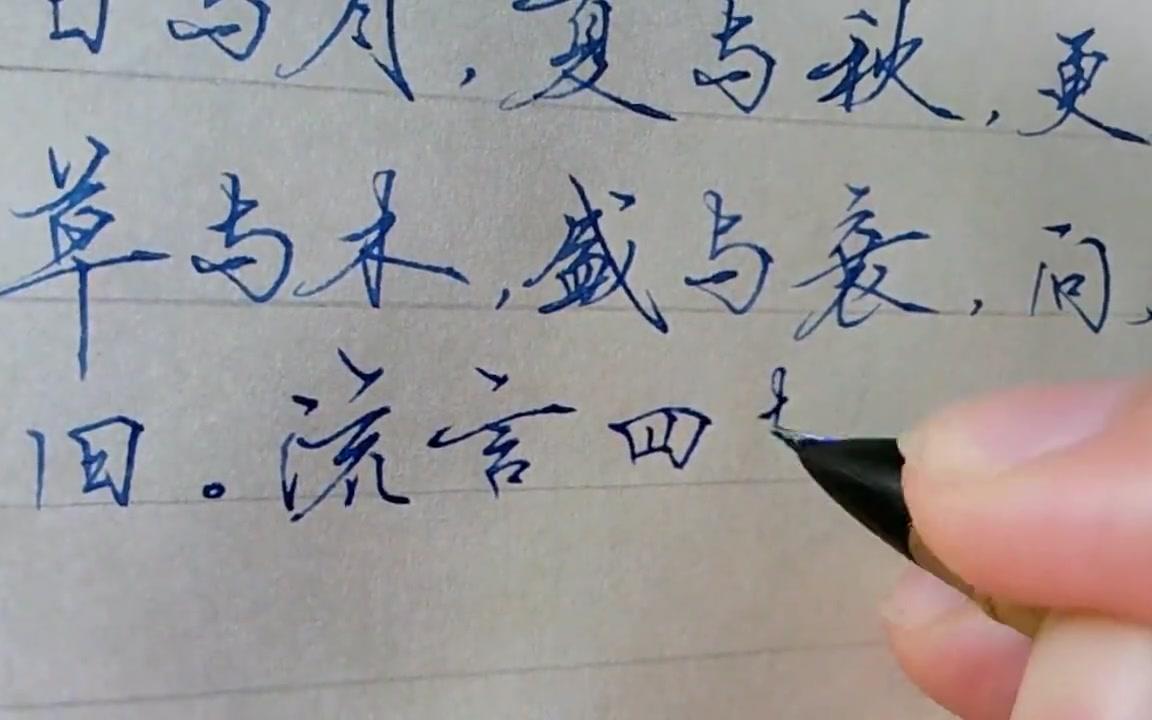 日与月,夏与秋,更
草与木,盛与衰,问
旧。流言四